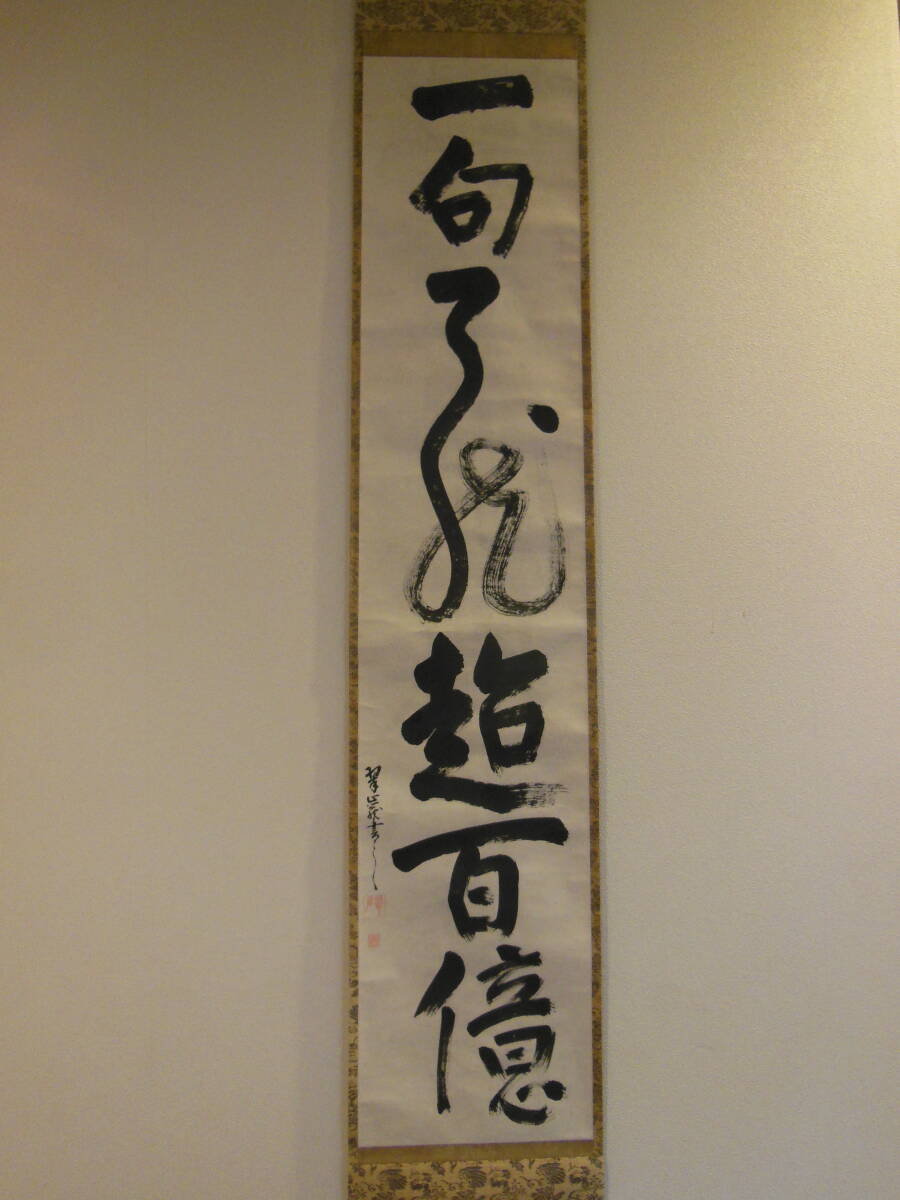 一句了然超百億
翠巌書之